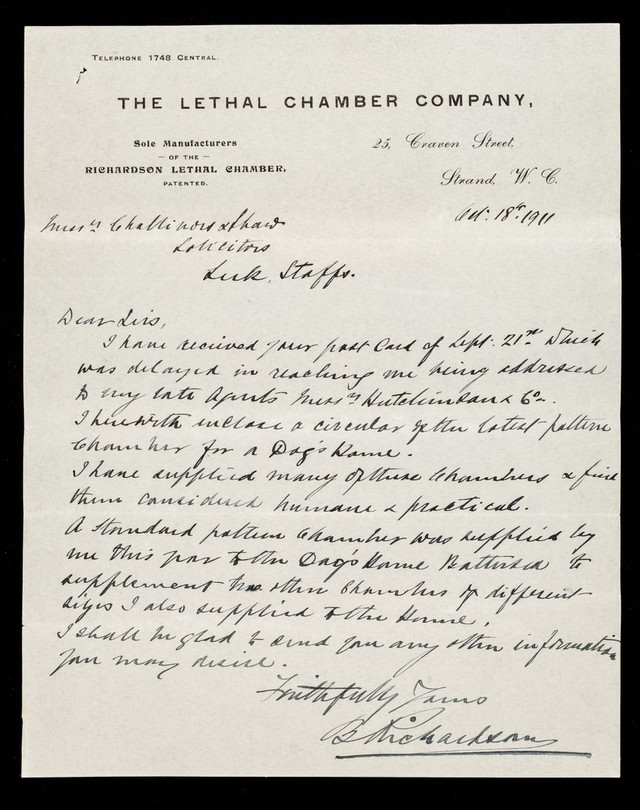 Telephone 1748 Central.
THE LETHAL CHAMBER COMPANY,
Sole Manufacturers
— OF THE —
RICHARDSON LETHAL CHAMBER,
PATENTED.
25, Craven Street,
Strand, W. C.
Oct: 18th 1911
Messrs Challinors & Shaw
Solicitors
Leek, Staffs.
Dear Sirs,
I have received your post card of Sept: 21st which
was delayed in reaching me being addressed
to my late Agents Messrs Hutchinson & Co.
I herewith inclose a circular of the latest pattern
Chamber for a Dog's Home.
I have supplied many of these Chambers & find
them considered humane & practical.
A standard pattern Chamber was supplied by
me this year to the Dog's Home Battersea to
supplement two other Chambers of different
sizes I also supplied to the Home.
I shall be glad to send you any other information
you may desire.
Faithfully Yours
B Richardson